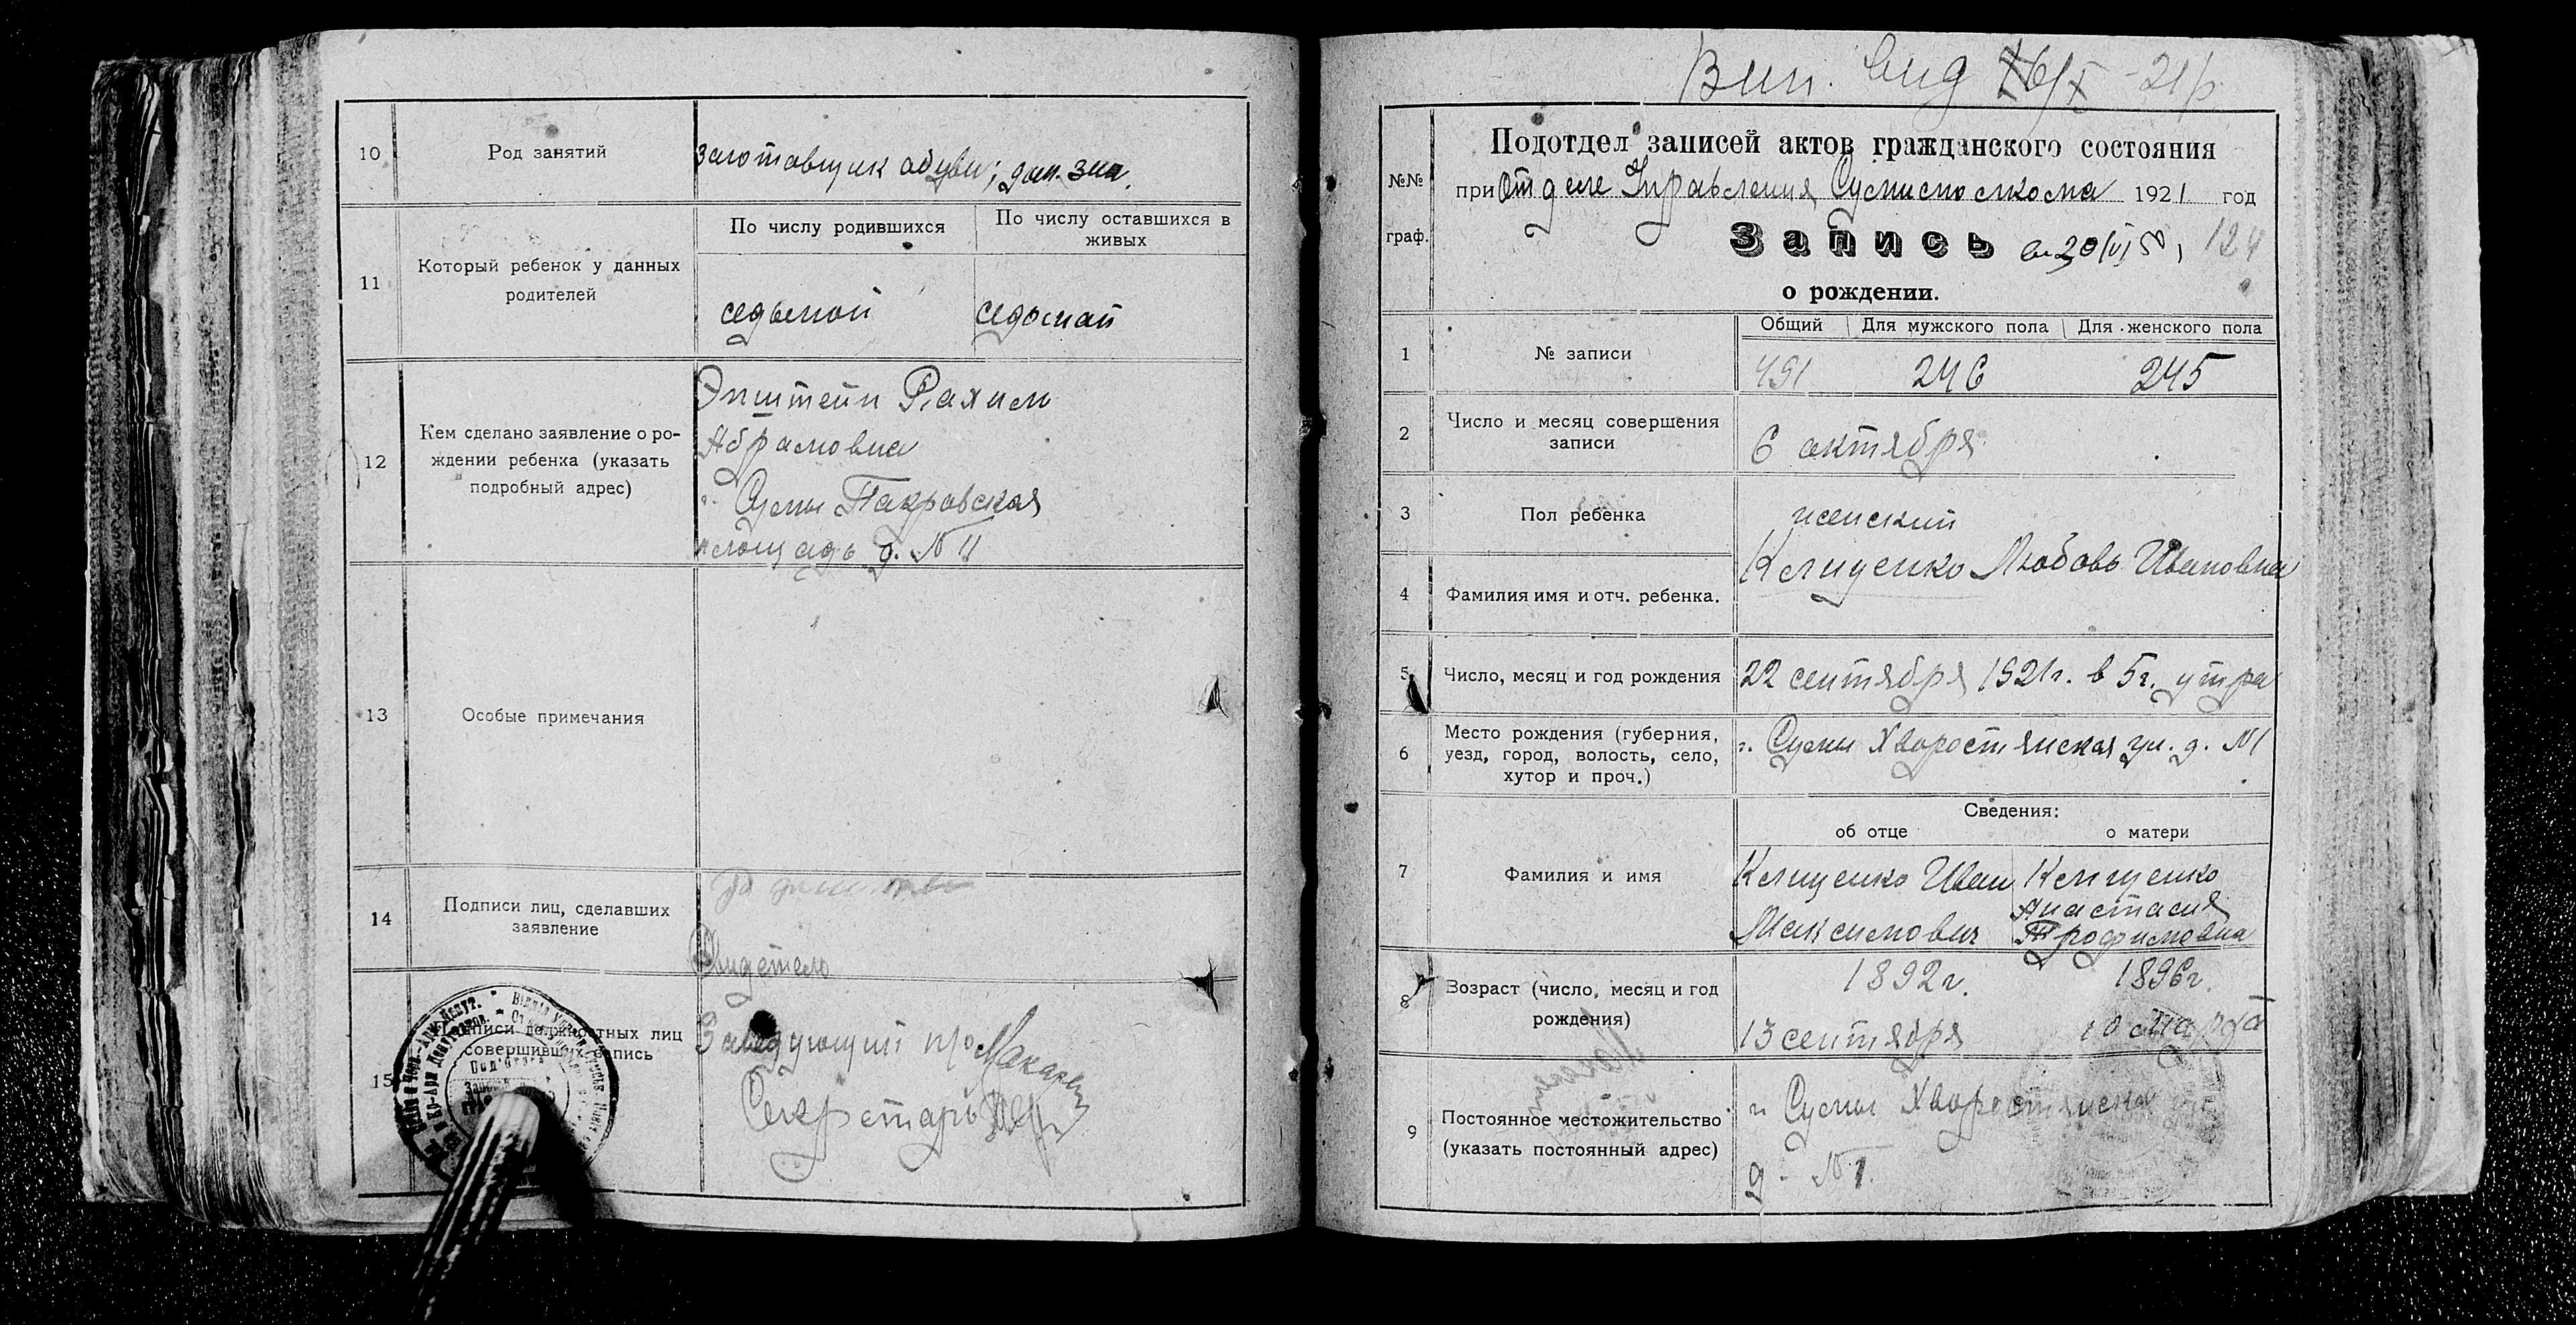 10
Род занятий
заготовщик обуви; дом. зан.
11
Который ребенок у данных
родителей
По числу родившихся
По числу оставшихся в
живых
седьмой
седьмой
12
Кем сделано заявление о ро-
ждении ребенка (указать
подробный адрес)
Эпштейн Рахиль
Абрамовна
г. Сумы Покровская
площадь д. № 11
13
Особые примечания
14
Подписи лиц, сделавших
заявление
Свидетель
15
Подписи должностных лиц
совершивших запись
Заведующий
Секретарь
Вип. вид 6/X-21р.
№№
граф.
Подотдел записей актов гражданского состояния
при Отделе Управления Сумисполкома 1921 год
Запись
124
о рождении.
1
№ записи
Общий
Для мужского пола
Для женского пола
491
246
245
2
Число и месяц совершения
записи
6 октября
3
Пол ребенка
женский
4
Фамилия имя и отч. ребенка.
Клищенко Любовь Ивановна
5
Число, месяц и год рождения
22 сентября 1921г. в 5г. утра
6
Место рождения (губерния,
уезд, город, волость, село,
хутор и проч.)
г. Сумы Хворостянская ул. д. №1
Сведения:
об отце
о матери
7
Фамилия и имя
Клищенко Иван
Максимович
Клищенко
Анастасия
Трофимовна
8
Возраст (число, месяц и год
рождения)
1892г.
13 сентября
1896г.
10 марта
9
Постоянное местожительство
(указать постоянный адрес)
г. Сумы Хворостянская
д. №1.